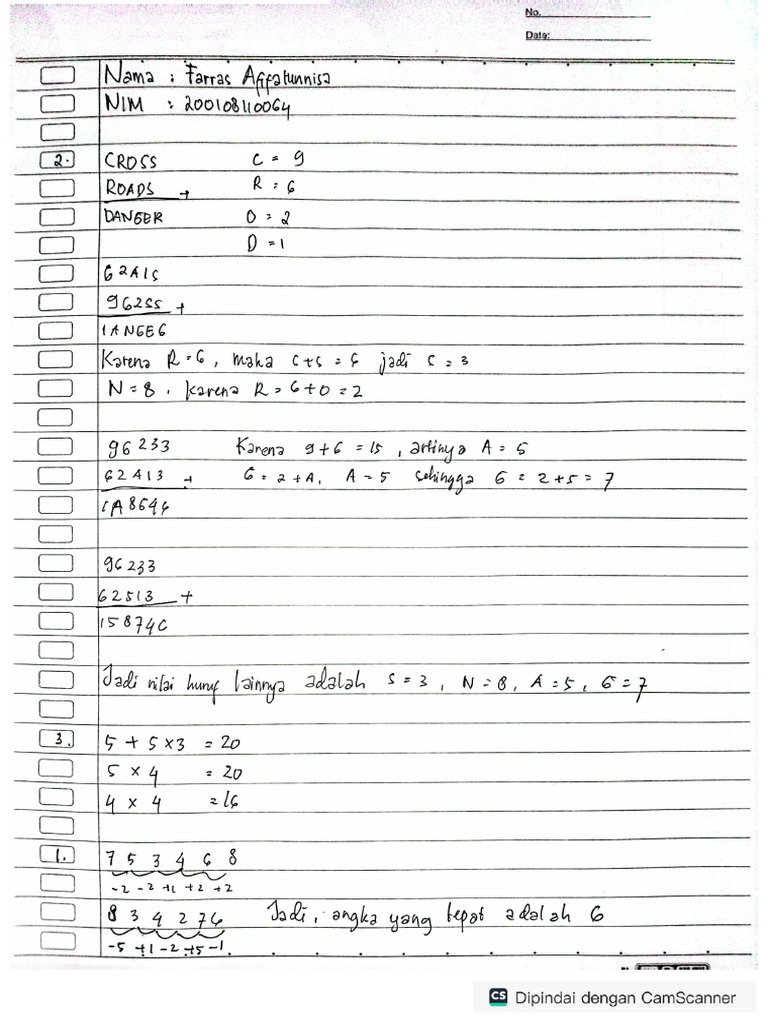 No.
Date:
Nama : Farras Affatunnisa
NIM : 200108110064
2. CROSS C = 9
ROADS + R = 6
DANGER O = 2
D = 1
62A1S
962SS +
1ANGE6
Karena R = 6, maka S+S = 6 jadi S = 3
N = 8, karena R = 6 + O = 2
96233 Karena 9+6 = 15, artinya A = 5
62A13 + G = 2 + A, A = 5 sehingga G = 2 + 5 = 7
1A8646
96233
62513 +
158746
Jadi nilai huruf lainnya adalah S = 3, N = 8, A = 5, G = 7
3. 5 + 5 x 3 = 20
5 x 4 = 20
4 x 4 = 16
1. 7 5 3 4 6 8
-2 -2 +1 +2 +2
8 3 4 2 7 6 Jadi, angka yang tepat adalah 6
-5 +1 -2 +5 -1
CS Dipindai dengan CamScanner